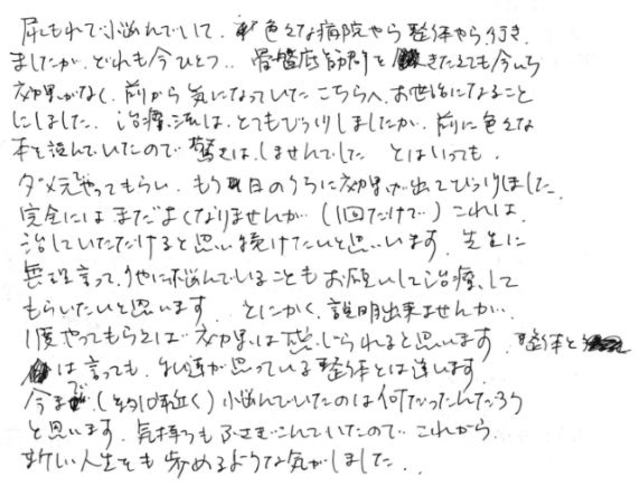 尿もれで小悩んでいて、色々な病院やら整体やら行き
ましたが、どれも今ひとつ.. 骨盤底筋群をきたえても今いち
効果がなく、前から気になっていたこちらへ、お世話になること
にしました。治療法は、とてもびっくりしましたが、前に色々な
本を読んでいたので驚きはしませんでした とはいっても、
ダメ元でやってもらい、もう1日のうちに効果が出てびっくりました。
完全にはまだよくなりませんが(1回だけで)これは、
治していただけると思い続けたいと思います。先生に
無理言って、他に悩んでいることもお願いして治療して
もらいたいと思います。とにかく、説明出来ませんが..
1度やってもらえば効果は感じられると思います。整体と
は言っても、私達が思っている整体とは違います。
今まで、(約10年近く)小悩んでいたのは何だったんだろう
と思います。気持ちもふさぎこんでいたので、これから
新しい人生をも歩めるような気がしました..